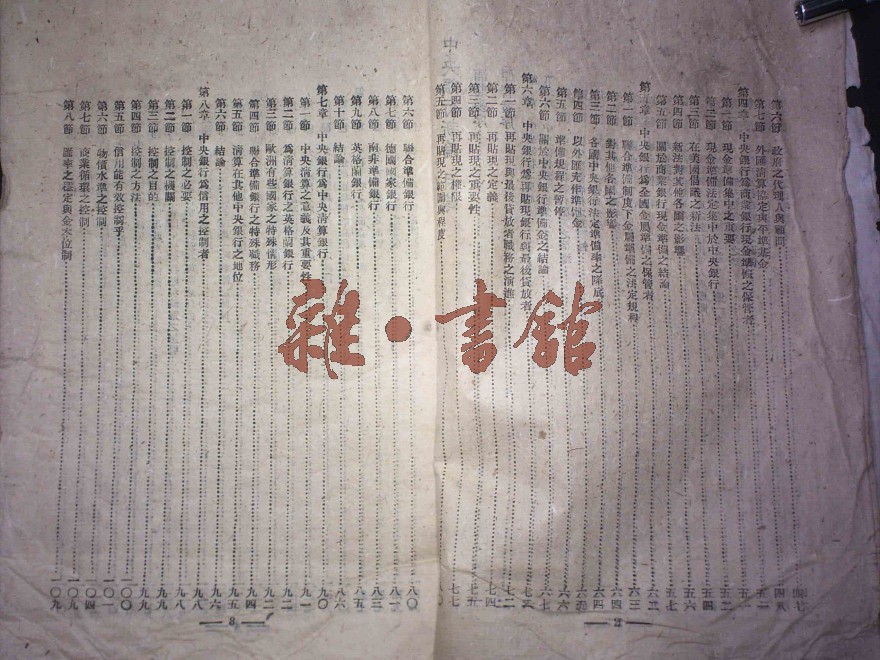 第六節 政府之代理人與顧問 四七
第七節 外國清算協定與平準基金 四八
第四章 中央銀行為商業銀行現金準備之保管者 五一
第一節 現金準備集中之重要 五一
第二節 現金準備法定集中於中央銀行 五四
第三節 在美國倡議之新法 五五
第四節 新法對其他各國之影響 五七
第五節 關於商業銀行現金準備之結論 六二
第五章 中央銀行為各國金屬準備之保管者 六三
第一節 聯合準備制度下金屬準備之法定規程 六三
第二節 對其他各國之影響 六四
第三節 各國中央銀行法定準備率之降底 六四
第四節 以外匯充作準備金 六五
第五節 準備規程之暫停 六六
第六節 關於中央銀行準備金之結論 六七
第六章 中央銀行為再貼現銀行與最後貸放者 七二
第一節 再貼現與最後貸放者職務之演進 七二
第二節 再貼現之定義 七四
第三節 再貼現之重要性 七五
第四節 再貼現之權限 七七
第五節 再貼現之範圍與程度
2
第六節 聯合準備銀行 八〇
第七節 德國國家銀行 八一
第八節 南非準備銀行 八三
第九節 英格蘭銀行 八五
第十節 結論 八六
第七章 中央銀行為中央清算銀行 九〇
第一節 中央清算之意義及其重要性 九一
第二節 為清算銀行之英格蘭銀行 九二
第三節 歐洲有些國家之特殊情形 九二
第四節 聯合準備銀行之特殊職務 九四
第五節 清算在其他中央銀行之地位 九五
第六節 結論 九六
第八章 中央銀行為信用之控制者 九八
第一節 控制之必要 九八
第二節 控制之機關 九九
第三節 控制之目的 九九
第四節 控制之方法 一〇〇
第五節 信用能有效控制乎 一〇〇
第六節 物價水準之控制 一〇一
第七節 商業循環之控制 一〇四
第八節 匯率之穩定與金本位制 一〇九
3
雜·書館